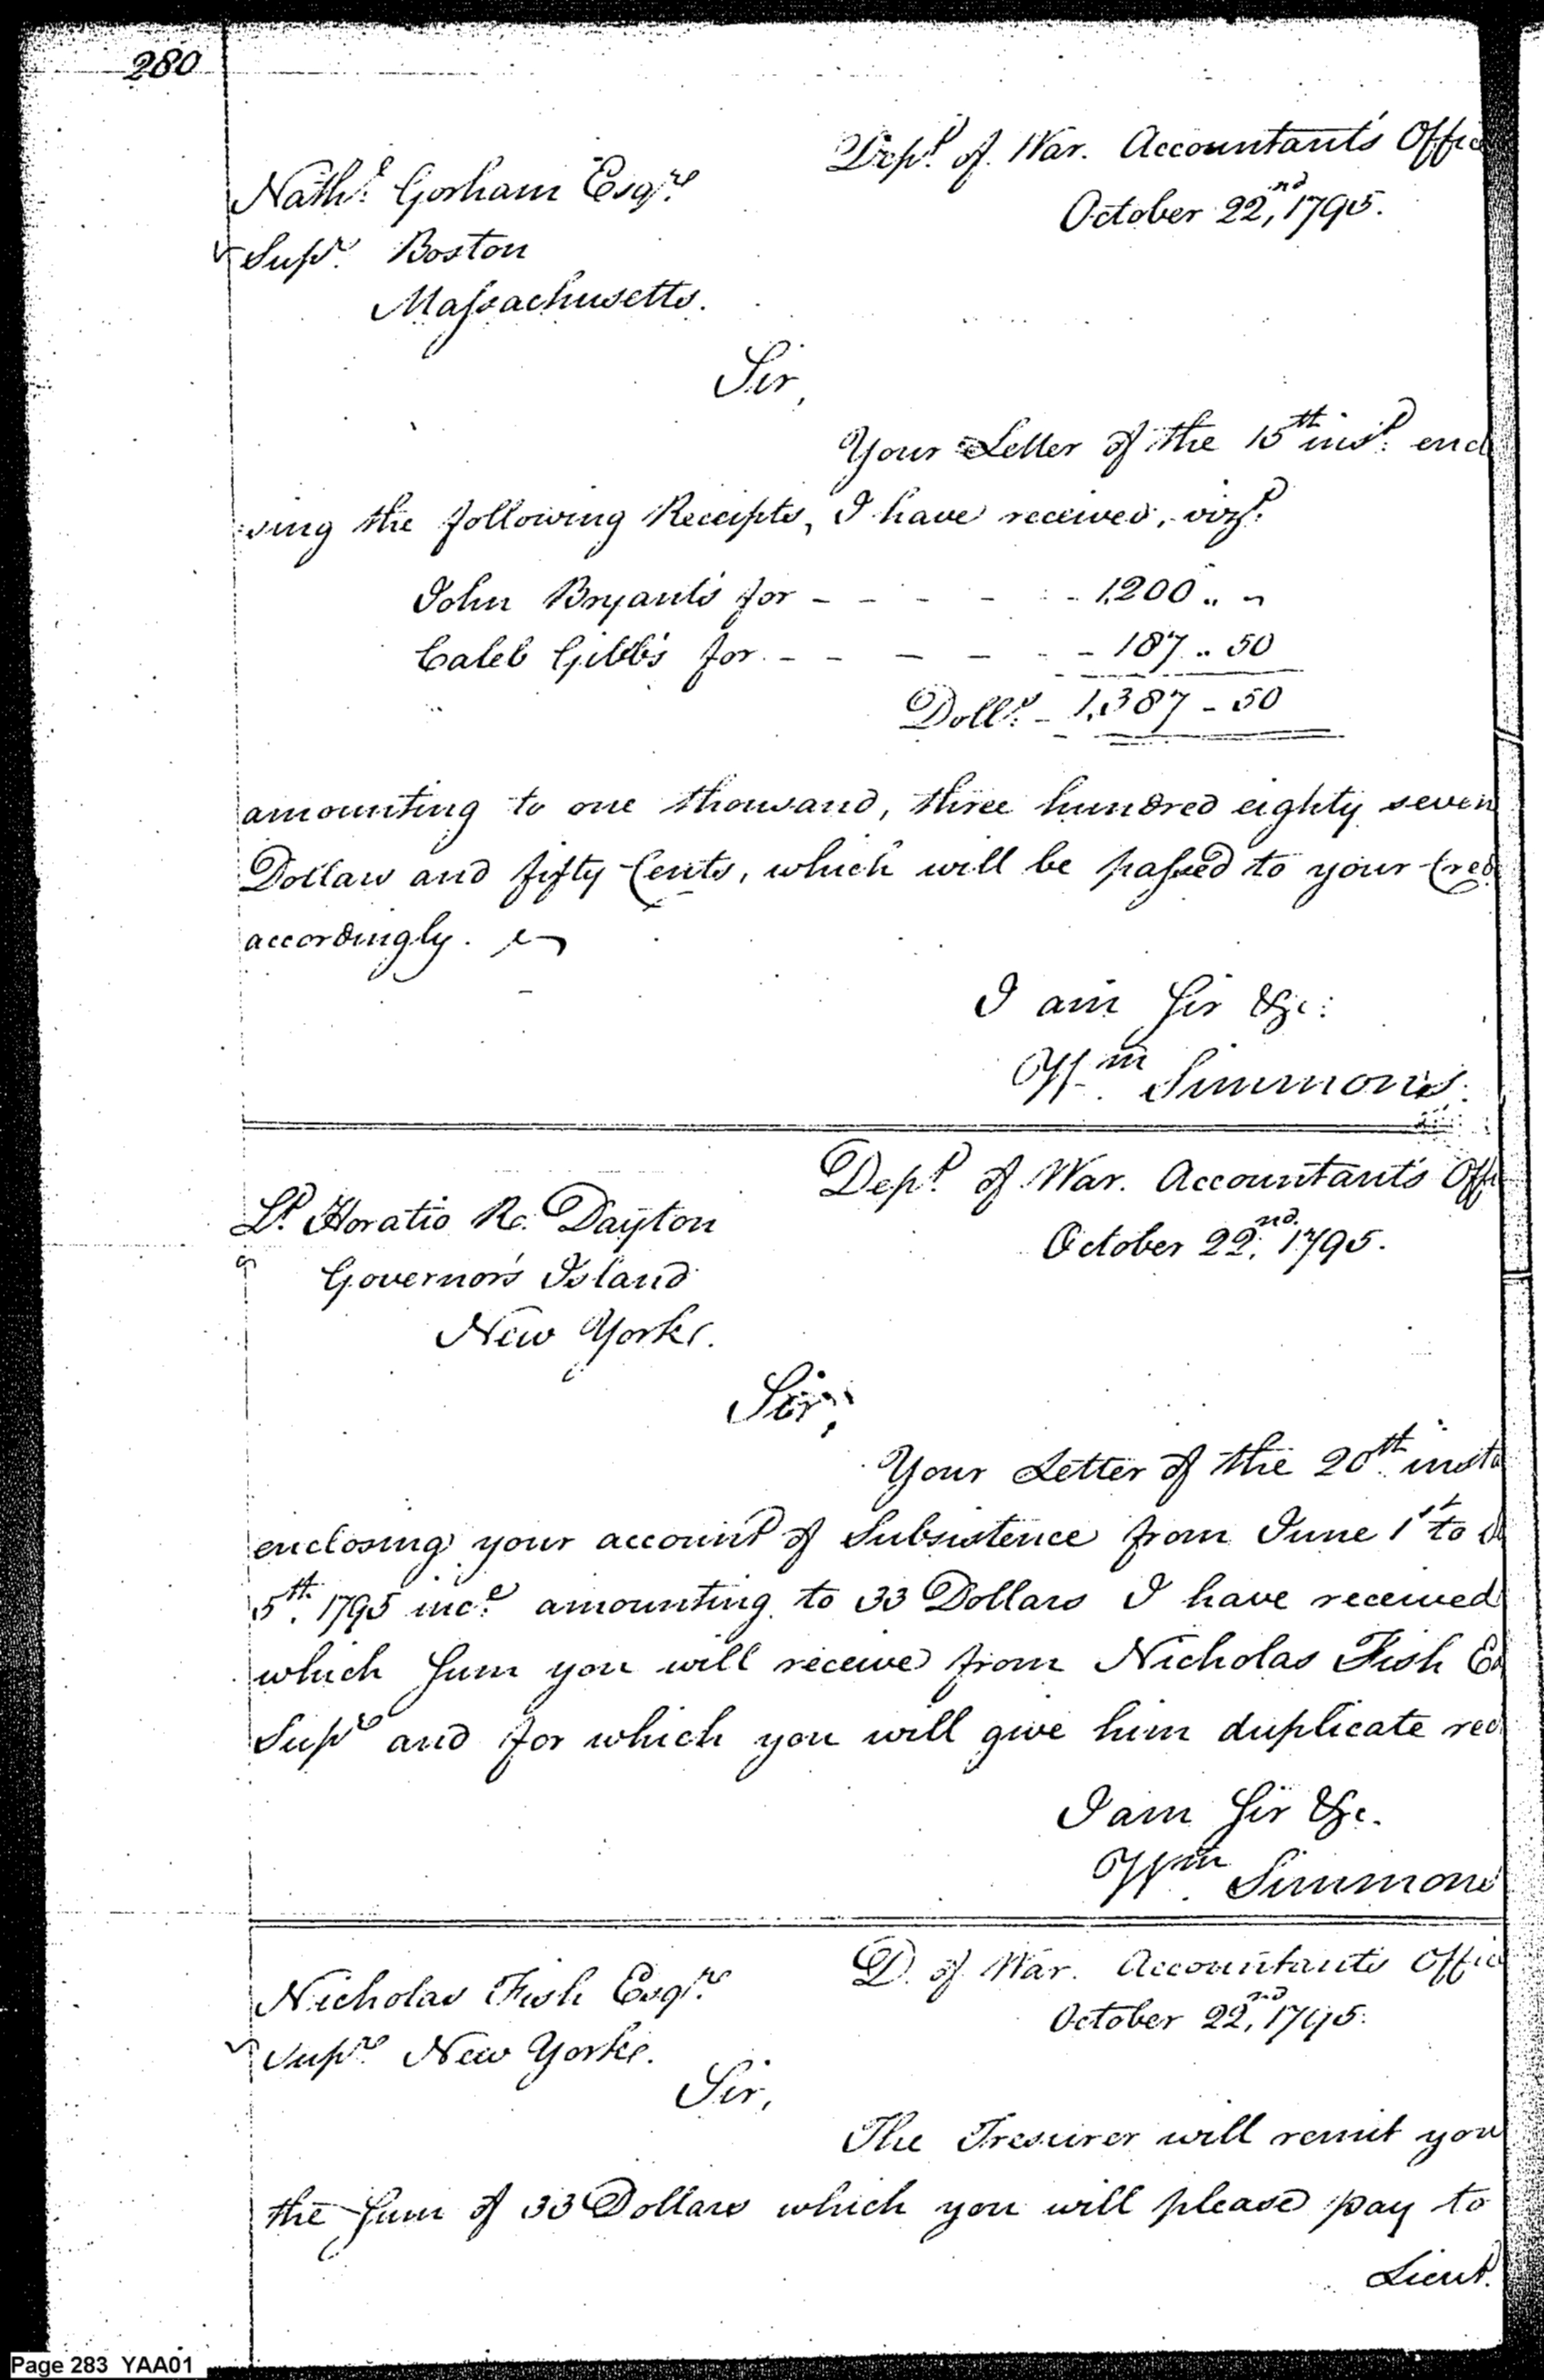 280
Dept. of War. Accountant's Offic
October 22,nd 1795.
Nathl. Gorham Esqre.
Supr. Boston
Massachusetts.
Sir,
Your Letter of the 15th inst. enclo
:sing the following Receipts, I have received, vizt.
John Bryant's for - - - - - - 1,200 .. "
Caleb Gibb's for - - - - - - 187 .. 50
Dolls. - 1,387 - 50
amounting to one thousand, three hundred eighty seven
Dollars and fifty Cents, which will be passed to your Cred
accordingly.
I am Sir &c:
Wm. Simmons.
Dept. of War. Accountant's Offi
October 22.nd 1795.
Lt. Horatio R. Dayton
Governor's Island
New York.
Sir,
Your Letter of the 20th. insta
enclosing your account of Subsistence from June 1st to
5th. 1795 incle. amounting to 33 Dollars I have received
which Sum you will receive from Nicholas Fish Es
Supr and for which you will give him duplicate rec
I am Sir &c.
Wm. Simmons
D. of War. Accountants Offic
October 22,nd 1795.
Nicholas Fish Esqre.
Supr. New York.
Sir,
The Tresurer will remit you
the Sum of 33 Dollars which you will please pay to
Lieut.
Page 283 YAA01